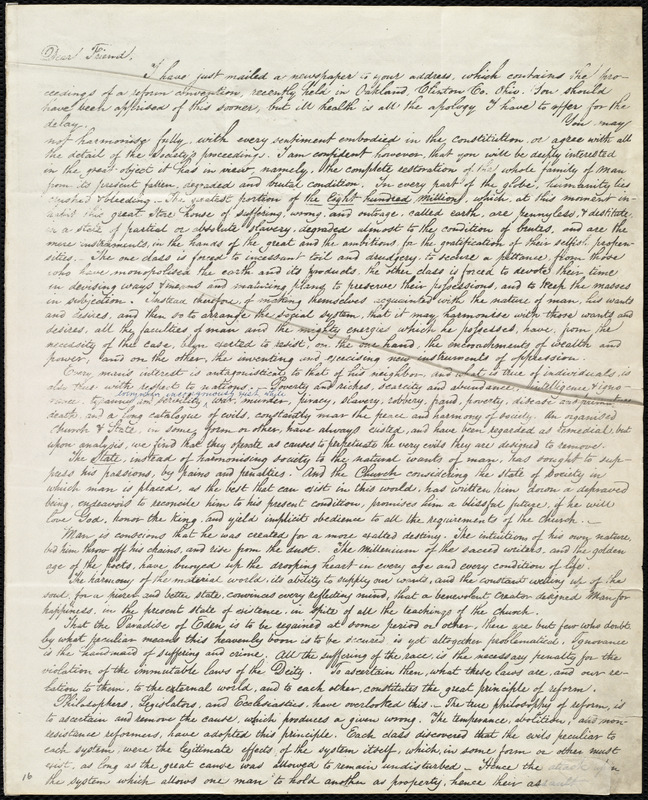 Dear Friend,
I have just mailed a newspaper to your address, which contains the pro-
ceedings of a reform convention, recently held in Oakland, Clinton Co. Ohio. You should
have been apprised of this sooner, but ill health is all the apology I have to offer for the
delay. You may
not harmonise fully, with every sentiment embodied in the constitution, or agree with all
the detail of the Society's proceedings. I am confident however, that you will be deeply interested
in the great object it has in view, namely, the complete restoration of the whole family of man
from its present fallen, degraded and brutal condition. In every part of the globe, humanity lies
crushed & bleeding. The greatest portion of the eight hundred millions, which, at this moment in-
habit this great store house of suffering, wrong, and outrage, called earth, are pennyless, & destitute,
in a state of partial or absolute slavery, degraded almost to the condition of brutes, and are the
mere instruments, in the hands of the great and the ambitious, for the gratification of their selfish propen-
sities. The one class is forced to incessant toil and drudgery, to secure a pittance, from those
who have monopolised the earth and its products, the other class is forced to devote their time
in devising ways & means and maturing plans, to preserve their possessions, and to keep the masses
in subjection. Instead therefore, of making themselves acquainted with the nature of man, his wants
and desires, and then so to arrange the social system, that it may harmonise with those wants and
desires, all the faculties of man and the mighty energies which he possesses, have, from the
necessity of the case, been exerted to resist on the one hand, the encroachments of wealth and
power, and on the other, the inventing and exercising new instruments of oppression.
Every man's interest is antagonistic to that of his neighbor, and what is true of individuals, is
also thus with respect to nations. Poverty and riches, scarcity and abundance, intelligence & igno-
rance, war, murder, piracy, slavery, robbery, fraud, poverty, disease and
death, and a long catalogue of evils, constantly mar the peace and harmony of society. An organised
Church & State, in some form or other, have always existed, and have been regarded as remedial, but
upon analysis, we find that they operate as causes to perpetuate the very evils they are designed to remove.
The State, instead of harmonising society to the natural wants of man, has sought to sup-
press his passions, by pains and penalties. And the Church considering the state of Society in
which man is placed, as the best that can exist in this world, has written him down a depraved
being, endeavors to reconcile him to his present condition, promises him a blissful future, if he will
love God, honor the King, and yield implicit obedience to all the requirements of the church.
Man is conscious that he was created for a more exalted destiny. The intuitions of his own nature,
bid him throw off his chains, and rise from the dust. The Millenium of the sacred writers, and the golden
age of the poets, have buoyed up the drooping heart in every age and every condition of life.
The harmony of the material world, its ability to supply our wants, and the constant welling up of the
soul, for a purer and better state, convinces every reflecting mind, that a benevolent Creator designed Man for
happiness, in the present state of existence, in spite of all the teachings of the Church.
That the Paradise of Eden is to be regained at some period or other, there are but few who doubt,
by what peculiar means this heavenly boon is to be secured is yet altogether problematical. Ignorance
is the handmaid of suffering and crime. All the suffering of the race, is the necessary penalty for the
violation of the immutable laws of the Deity. To ascertain then, what these laws are, and our re-
lation to them, to the external world, and to each other, constitutes the great principle of reform.
Philosophers, Legislators, and Ecclesiastics, have overlooked this. The true philosophy of reform, is
to ascertain and remove the cause, which produces a given wrong. The temperance, abolition, and non-
resistance reformers, have adopted this principle. Each class discovered that the evils peculiar to
each system, were the legitimate effects of the system itself, which, in some form or other must
exist, as long as the great cause was allowed to remain undisturbed. Hence the attack upon
the system which allows one man to hold another as property, hence their assault
16